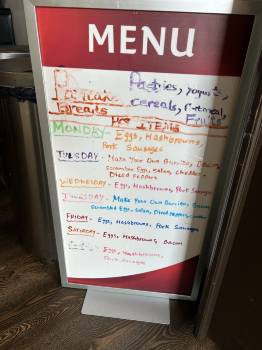 MENU
Pastries, yogurts,
Pancake cereals, Oatmeal,
Breads Fruits
HOT ITEMS
MONDAY - Eggs, Hashbrowns,
Pork Sausages
TUESDAY - Make Your Own Burritos,
Scramble Egg, Salsa, Cheddar,
Diced Peppers
WEDNESDAY - Egg, Hashbrowns, Pork Sausage
THURSDAY - Make Your Own Burritos,
Scrambled Egg, Salsa, Diced Peppers,
FRIDAY - Eggs, Hashbrowns, Pork Sausages
SATURDAY - Eggs, Hashbrowns, Bacon
Egg, Hashbrowns,
Pork Sausages